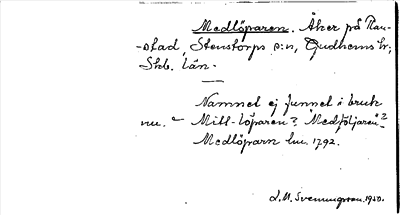 Medlöparen. Åker på Ran-
-stad, Stenstorps s:n, Gudhems hr,
Skb. län.
Namnet ej funnet i bruk
nu. - Mitt-löparen? "Medföljaren"?
Medlöparn lm. 1792.
L. M. Svenungsson. 1920.